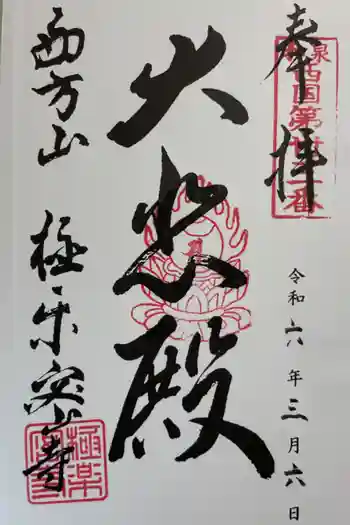 奉拝
泉西国第卅三番
令和六年三月六日
大悲殿
西方山
極楽密寺
極楽